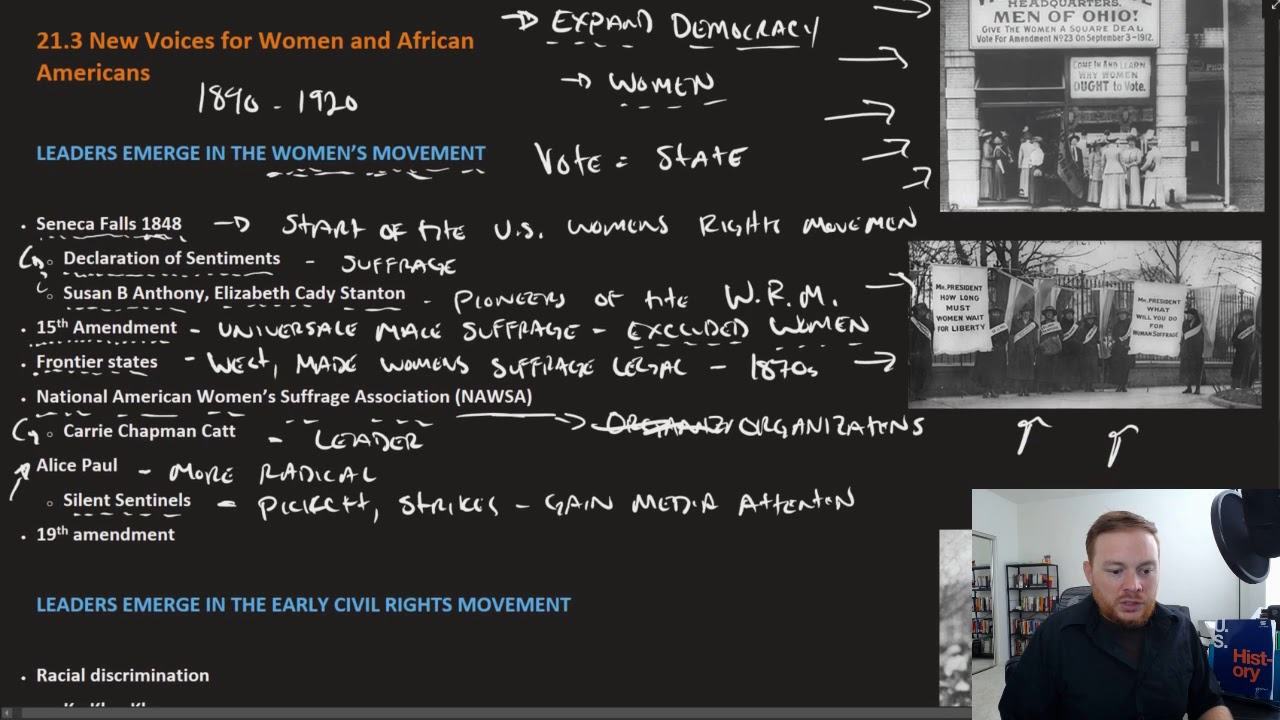 21.3 New Voices for Women and African
Americans
1890 - 1920
→ EXPAND DEMOCRACY
→ WOMEN
LEADERS EMERGE IN THE WOMEN'S MOVEMENT
VOTE = STATE
• Seneca Falls 1848 → START OF THE U.S. WOMENS RIGHTS MOVEMEN
○ Declaration of Sentiments - SUFFRAGE
○ Susan B Anthony, Elizabeth Cady Stanton - PIONEERS OF THE W.R.M.
• 15th Amendment - UNIVERSALE MALE SUFFRAGE - EXCLUDED WOMEN
• Frontier states - WEST, MADE WOMENS SUFFRAGE LEGAL - 1870s
• National American Women's Suffrage Association (NAWSA)
→ ORGANIZATIONS
○ Carrie Chapman Catt - LEADER
• Alice Paul - MORE RADICAL
○ Silent Sentinels - PICKETT, STRIKES - GAIN MEDIA ATTENTION
• 19th amendment
LEADERS EMERGE IN THE EARLY CIVIL RIGHTS MOVEMENT
• Racial discrimination
HEADQUARTERS.
MEN OF OHIO!
GIVE THE WOMEN A SQUARE DEAL
Vote For Amendment Nº23 On September 3-1912.
COME IN AND LEARN
WHY WOMEN
OUGHT to Vote.
MR. PRESIDENT
HOW LONG
MUST
WOMEN WAIT
FOR LIBERTY
MR. PRESIDENT
WHAT
WILL YOU DO
FOR
WOMAN SUFFRAGE
U.
S.
Hist-
ory